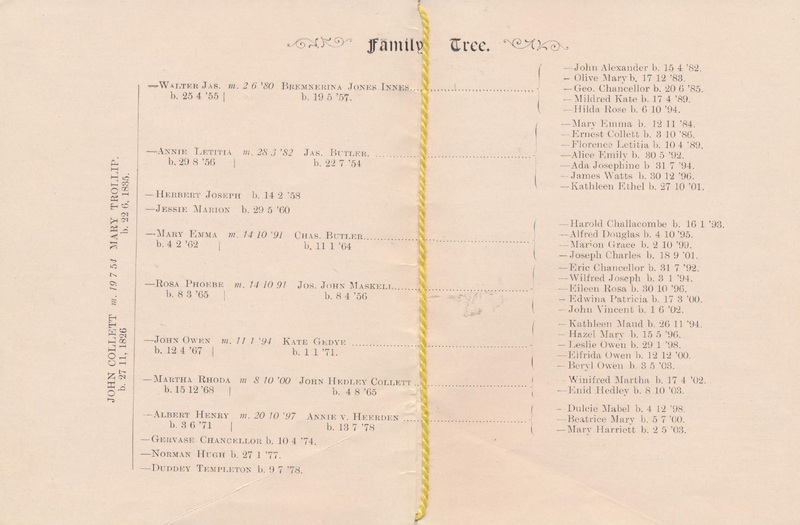 Family Tree.
JOHN COLLETT m. 19 7 54 MARY TROLLIP.
b. 27 11, 1826 b. 22 6, 1835.
—WALTER JAS. m. 2 6 '80 BREMNERINA JONES INNES
b. 25 4 '55 b. 19 5 '57.
—John Alexander b. 15 4 '82.
— Olive Mary b. 17 12 '83.
—Geo. Chancellor b. 20 6 '85.
— Mildred Kate b. 17 4 '89.
—Hilda Rose b. 6 10 '94.
—ANNIE LETITIA m. 28 3 '82 JAS. BUTLER.
b. 29 8 '56 b. 22 7 '54
—Mary Emma b. 12 11 '84.
—Ernest Collett b. 3 10 '86.
—Florence Letitia b. 10 4 '89.
—Alice Emily b. 30 5 '92.
—Ada Josephine b 31 7 '94.
—James Watts b. 30 12 '96.
—Kathleen Ethel b. 27 10 '01.
—HERBERT JOSEPH b. 14 2 '58
—JESSIE MARION b. 29 5 '60
—MARY EMMA m. 14 10 '91 CHAS. BUTLER
b. 4 2 '62 b. 11 1 '64
—Harold Challacombe b. 16 1 '93.
—Alfred Douglas b. 4 10 '95.
—Marion Grace b. 2 10 '99.
—Joseph Charles b. 18 9 '01.
—ROSA PHOEBE m. 14 10 91 JOS. JOHN MASKELL
b. 8 3 '65 b. 8 4 '56
—Eric Chancellor b. 31 7 '92.
—Wilfred Joseph b. 3 1 '94.
—Eileen Rosa b. 30 10 '96.
—Edwina Patricia b. 17 3 '00.
—John Vincent b. 1 6 '02.
—JOHN OWEN m. 11 1 '94 KATE GEDYE
b. 12 4 '67 b. 1 1 '71.
—Kathleen Maud b. 26 11 '94.
—Hazel Mary b. 15 5 '96.
—Leslie Owen b. 29 1 '98.
—Elfrida Owen b. 12 12 '00.
—Beryl Owen b. 3 5 '03.
—MARTHA RHODA m 8 10 '00 JOHN HEDLEY COLLETT
b. 15 12 '68 b. 4 8 '65
—Winifred Martha b. 17 4 '02.
—Enid Hedley b. 8 10 '03.
—ALBERT HENRY m. 20 10 '97 ANNIE V. HEERDEN
b. 3 6 '71 b. 13 7 '78
— Dulcie Mabel b. 4 12 '98.
—Beatrice Mary b. 5 7 '00.
—Mary Harriett b. 2 5 '03.
—GERVASE CHANCELLOR b. 10 4 '74.
—NORMAN HUGH b. 27 1 '77.
—DUDDEY TEMPLETON b. 9 7 '78.